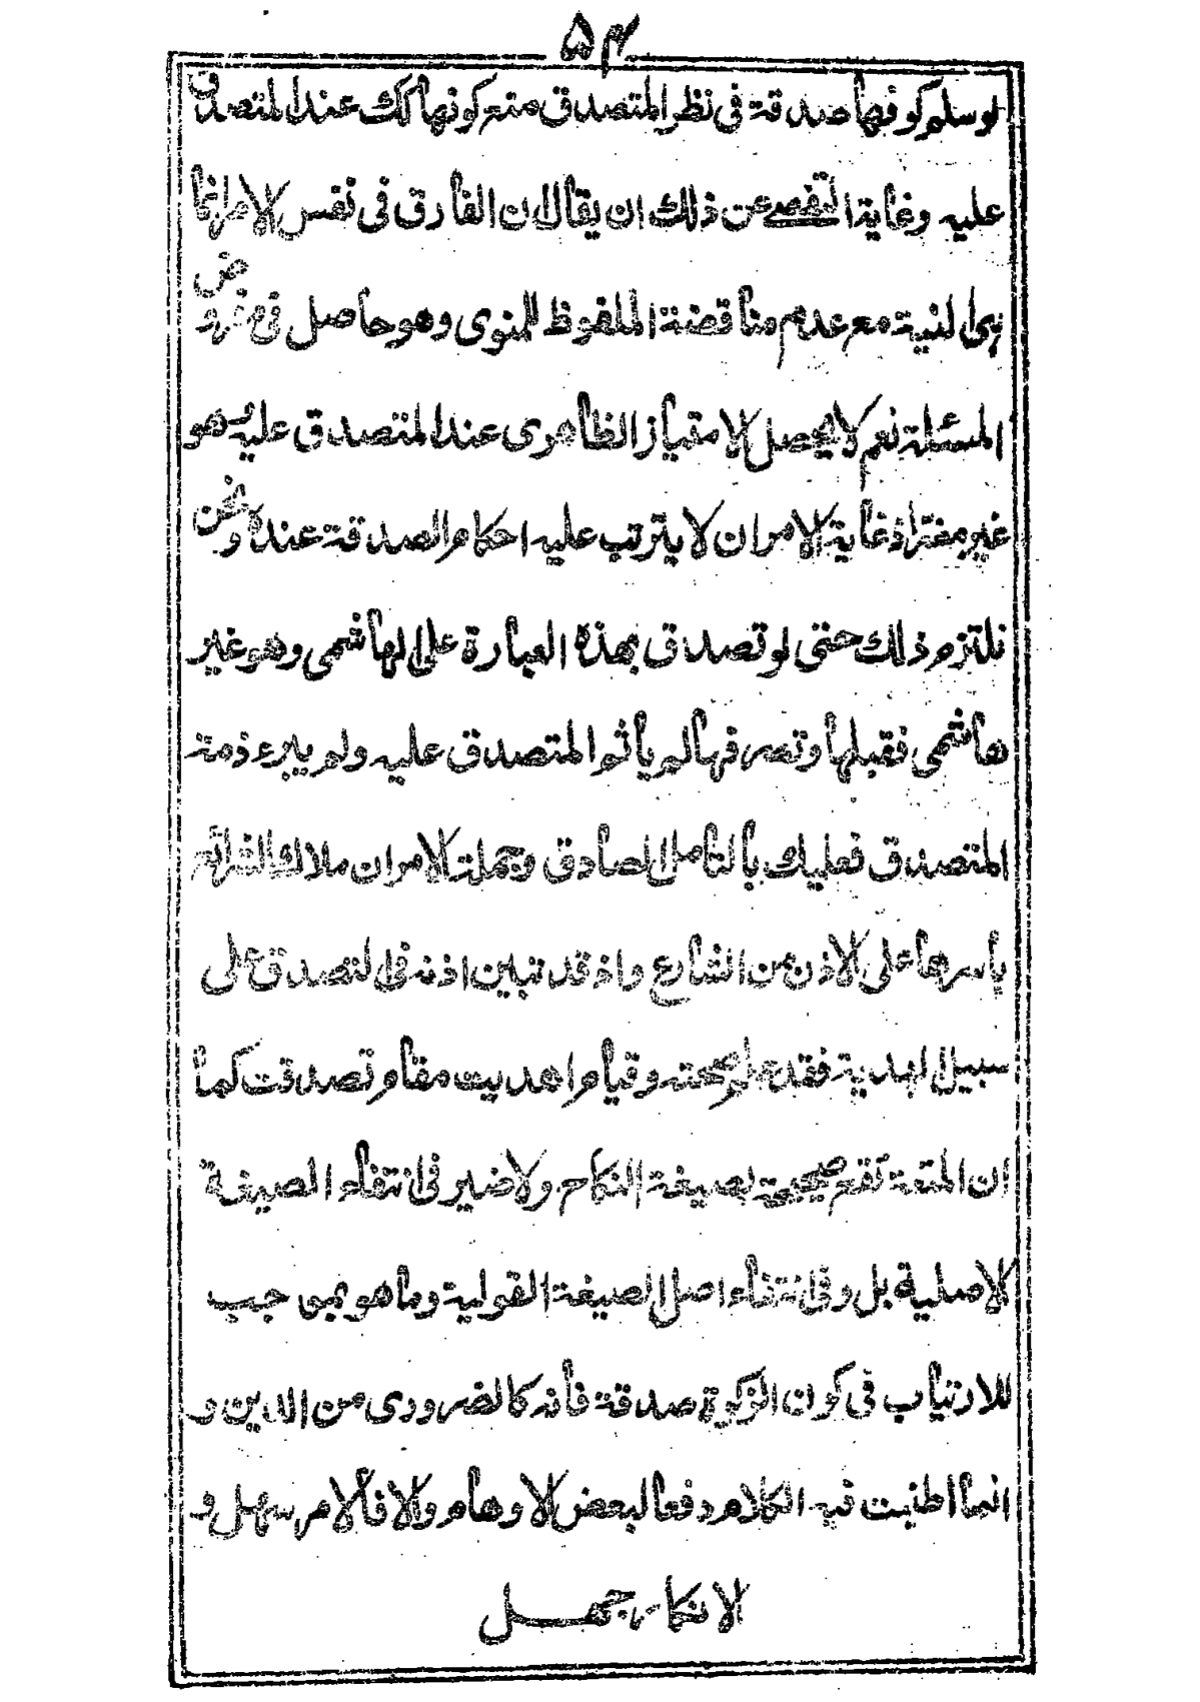 ٥٤
لو سلم كونها صدقة فى نظر المتصدق منع كونها كك عند المتصدق
عليه وغاية التفصى عن ذلك ان يقال ان الفارق فى نفس الامر انما
هى النية مع عدم مناقضة الملفوظ للمنوى وهو حاصل فى مفروض
المسئلة نعم لا يحصل الامتياز الظاهرى عند المتصدق عليه وهو
غير مضر اذ غاية الامر ان لا يترتب عليه احكام الصدقة عنده ونحن
نلتزم ذلك حتى لو تصدق بهذه العبارة على الهاشمى وهو غير
هاشمى فقبلها وتصرفها لم يأثم المتصدق عليه ولم يبرء ذمة
المتصدق فعليك بالتامل الصادق وجملة الامر ان ملاك الشرائع
باسرها على الاذن من الشارع واذ قد تبين اذنه فى التصدق على
سبيل الهدية فقد علم صحته وقيام اهديت مقام تصدقت كما
ان المتعة تقع صحيحة بصيغة النكاح ولا ضير فى انتفاء الصيغة
الاصلية بل وفى انتفاء اصل الصيغة القولية وما هو بموجب
للارتياب فى كون الزكوة صدقة فانه كالضرورى من الدين و
انما اطنبت فيه الكلام دفعا لبعض الاوهام والا فالامر سهل و
الانكار جهل